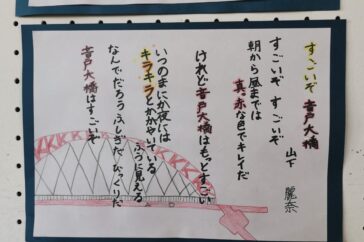 すごいぞ 音戸大橋
山下 麗奈
すごいぞ すごいぞ
朝から昼までは
真っ赤な色でキレイだ
けれど音戸大橋はもっとすごい
いつのまにか夜には
キラキラとかがやいている
ふうに見える
なんでだろうふしぎだ びっくりだ
音戸大橋はすごいぞ